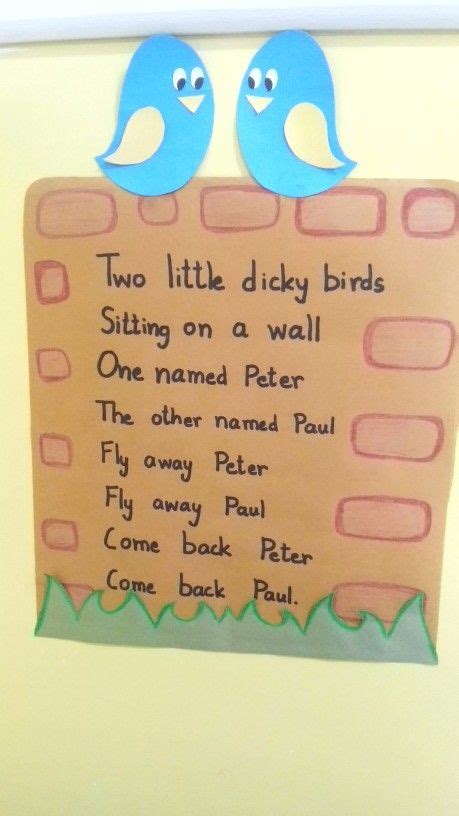 Two little dicky birds
Sitting on a wall
One named Peter
The other named Paul
Fly away Peter
Fly away Paul
Come back Peter
Come back Paul.